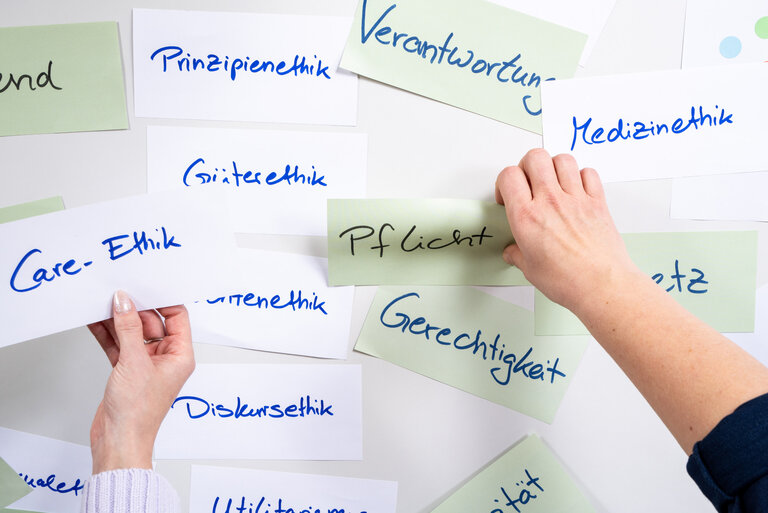 end
Prinzipienethik
Verantwortung
Medizinethik
Güterethik
Pflicht
Care-Ethik
etz
tenethik
Gerechtigkeit
Diskursethik
alet
Utilitarismu
ität